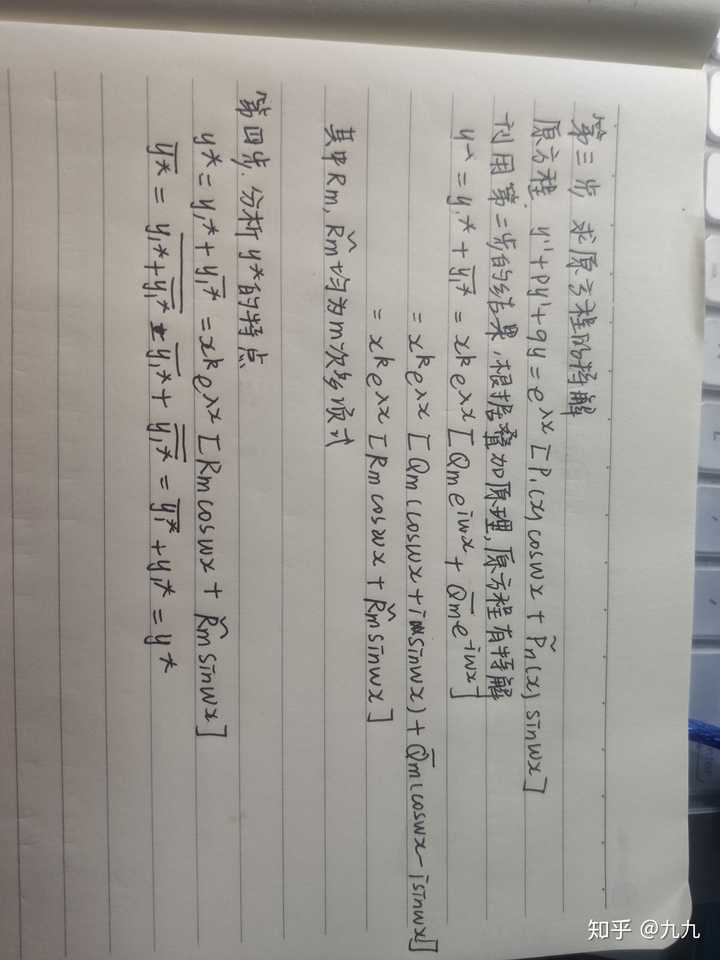 第三步 求原方程的特解
原方程 y''+py'+qy=e^λx[P₁(x)cosωx+P̃n(x)sinωx]
利用第二步的结果,根据叠加原理,原方程有特解
y*=y₁*+\overline{y₁*}=x^k e^λx[Qm e^iωx+\overline{Qm}e^-iωx]
=x^k e^λx[Qm(cosωx+isinωx)+\overline{Qm}(cosωx-isinωx)]
=x^k e^λx[Rm cosωx+R̃m sinωx]
其中Rm,R̃m均为m次多项式
第四步.分析y*的特点
y*=y₁*+\overline{y₁*}=x^k e^λx[Rm cosωx+R̃m sinωx]
\overline{y*}=\overline{y₁*+\overline{y₁*}}=\overline{y₁*}+\overline{\overline{y₁*}}=\overline{y₁*}+y₁*=y*
知乎 @九九